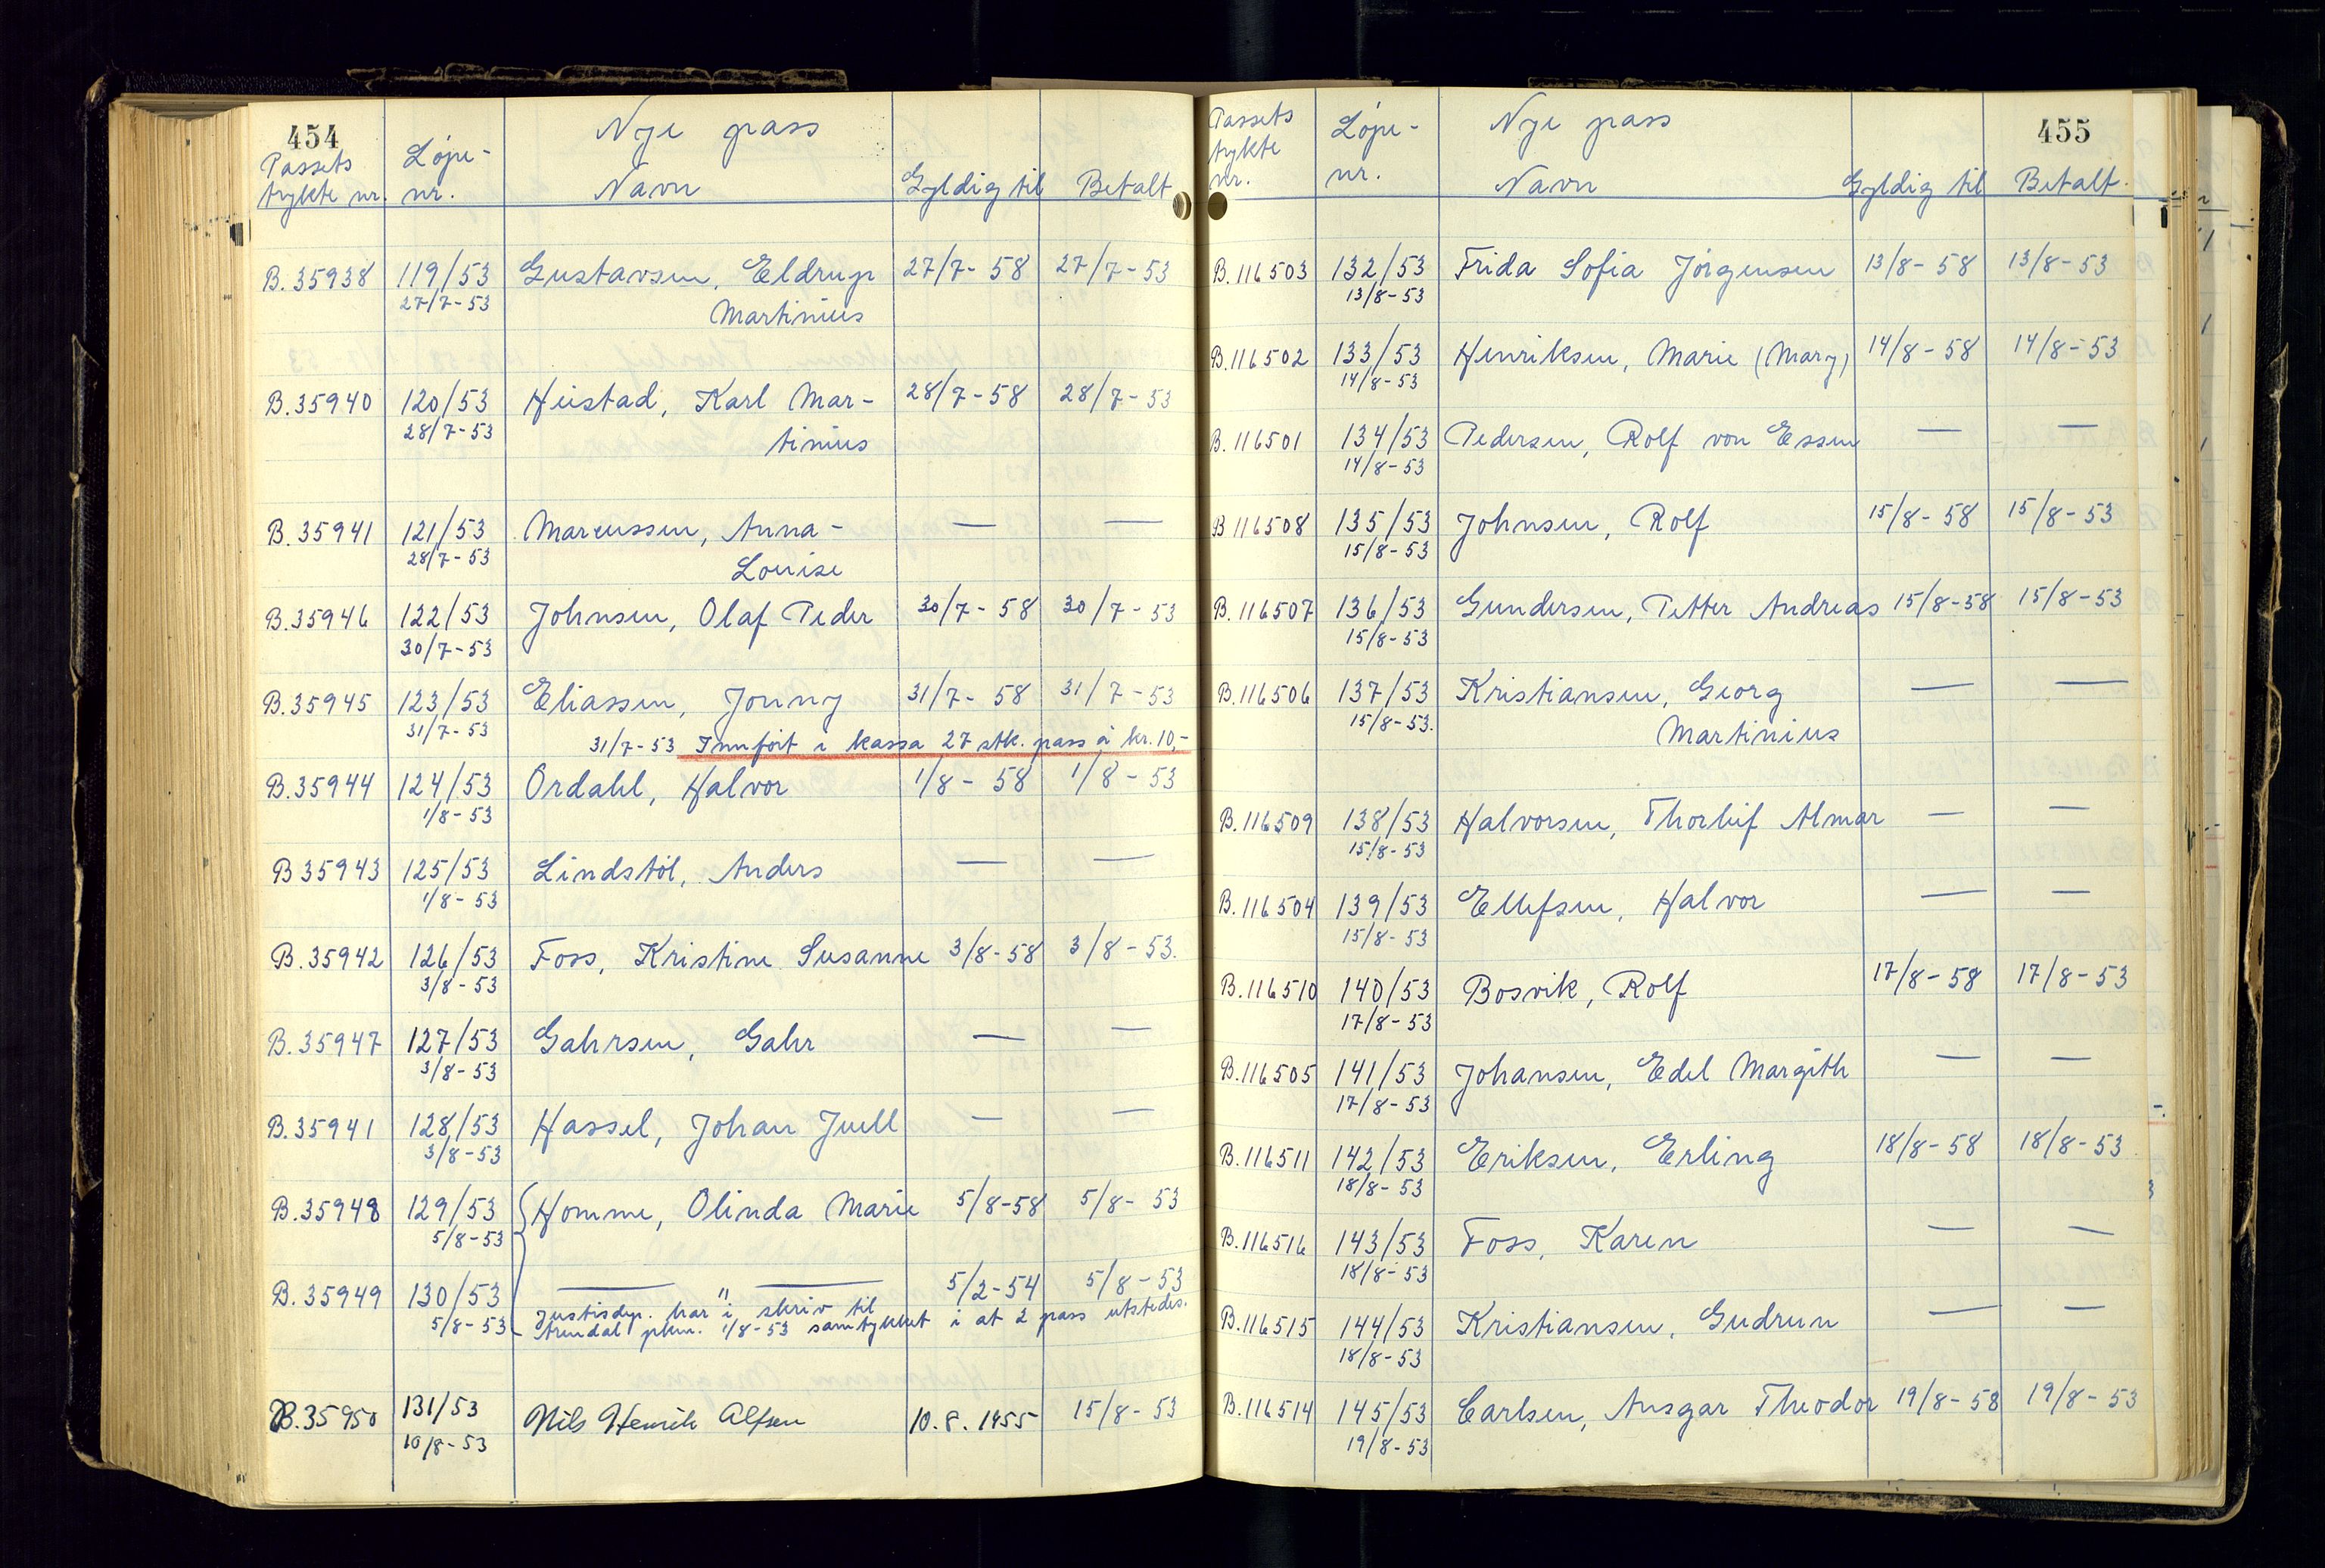 454
Nye pass
Passets trykte nr. Løpe-nr. Navn Gyldig til Betalt
B. 35938 119/53 Gustavsen, Eldrup 27/7-58 27/7-53
27/7-53 Martinius
B. 35940 120/53 Heistad, Karl Mar- 28/7-58 28/7-53
28/7-53 tinius
B. 35941 121/53 Marcussen, Anna- — —
28/7-53 Louise
B. 35946 122/53 Johnsen, Olaf Peder 30/7-58 30/7-53
30/7-53
B. 35945 123/53 Eliassen, Jonny 31/7-58 31/7-53
31/7-53 31/7-53 Innført i kassa 27 stk. pass à kr. 10,-
B. 35944 124/53 Ordahl, Halvor 1/8-58 1/8-53
1/8-53
B 35943 125/53 Lindstøl, Anders — —
1/8-53
B. 35942 126/53 Foss, Kristine Susanne 3/8-58 3/8-53.
3/8-53
B. 35947 127/53 Gahrsen, Gahr — —
3/8-53
B. 35941 128/53 Hassel, Johan Juell — —
3/8-53
B. 35948 129/53 Homme, Olinda Marie 5/8-58 5/8-53
5/8-53
B. 35949 130/53 — " — 5/2-54 5/8-53
Justisdep. har i skriv til
5/8-53 Arendal pkm. 1/8-53 samtykket i at 2 pass utstedes.
B. 35950 131/53 Nils Henrik Alfsen 10.8.1955 15/8-53
10/8-53
455
Nye pass
Passets trykte nr. Løpe-nr. Navn Gyldig til Betalt.
B. 116503 132/53 Frida Sofia Jørgensen 13/8-58 13/8-53
13/8-53
B. 116502 133/53 Henriksen, Marie (Mary) 14/8-58 14/8-53
14/8-53
B. 116501 134/53 Pedersen, Rolf von Essen — —
14/8-53
B 116508 135/53 Johnsen, Rolf 15/8-58 15/8-53
15/8-53
B. 116507 136/53 Gundersen, Petter Andreas 15/8-58 15/8-53
15/8-53
B. 116506 137/53 Kristiansen, Georg — —
15/8-53. Martinius
B. 116509 138/53 Halvorsen, Thorleif Almar — —
15/8-53
B. 116504 139/53 Ellefsen, Halvor — —
15/8-53
B. 116510 140/53 Bosvik, Rolf 17/8-58 17/8-53
17/8-53
B. 116505 141/53 Johansen, Edel Margith — —
17/8-53
B. 116511 142/53 Eriksen, Erling 18/8-58 18/8-53
18/8-53
B. 116516 143/53 Foss, Karen — —
18/8-53
B. 116515 144/53 Kristiansen, Gudrun — —
18/8-53
B. 116514 145/53 Carlsen, Ansgar Theodor 19/8-58 19/8-53
19/8-53